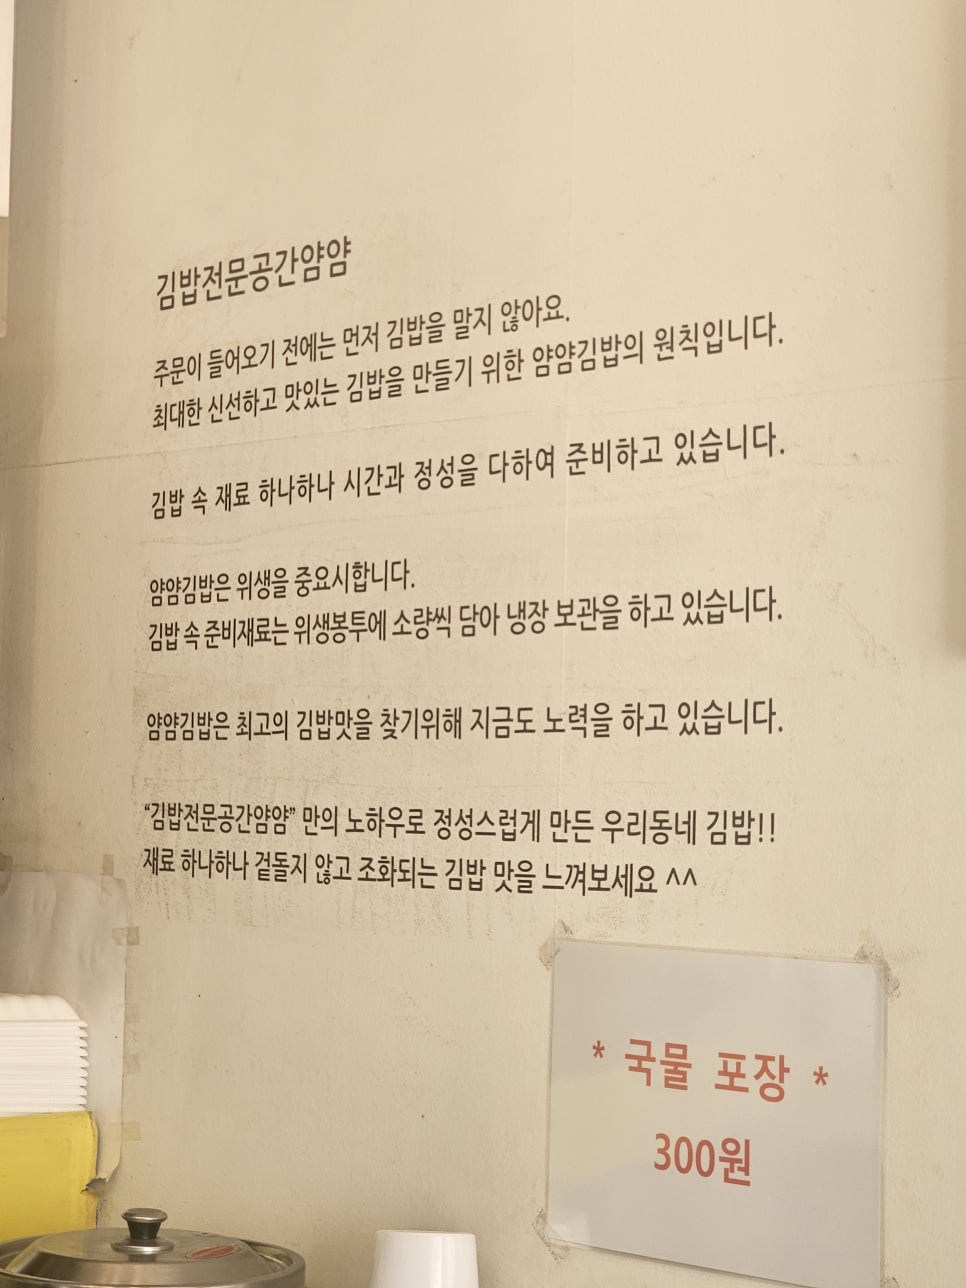 김밥전문공간얌얌
주문이 들어오기 전에는 먼저 김밥을 말지 않아요.
최대한 신선하고 맛있는 김밥을 만들기 위한 얌얌김밥의 원칙입니다.
김밥 속 재료 하나하나 시간과 정성을 다하여 준비하고 있습니다.
얌얌김밥은 위생을 중요시합니다.
김밥 속 준비재료는 위생봉투에 소량씩 담아 냉장 보관을 하고 있습니다.
얌얌김밥은 최고의 김밥맛을 찾기위해 지금도 노력을 하고 있습니다.
“김밥전문공간얌얌” 만의 노하우로 정성스럽게 만든 우리동네 김밥!!
재료 하나하나 겉돌지 않고 조화되는 김밥 맛을 느껴보세요 ^^
* 국물 포장 *
300원